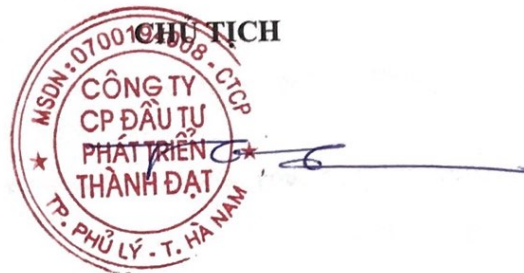 CHỦ TỊCH
MSDN: - CTCP
CÔNG TY
CP ĐẦU TƯ
PHÁT TRIỂN
THÀNH ĐẠT
TP. PHỦ LÝ - T. HÀ NAM